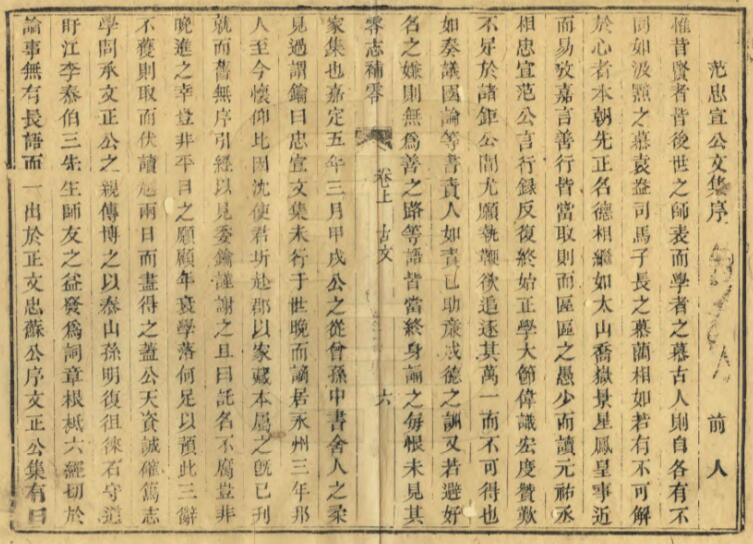 范忠宣公文集序 前人
惟昔賢者皆後世之師表而學者之慕古人則自各有不
同如汲黯之慕袁盎司馬子長之慕藺相如若有不可解
於心者本朝先正名德相繼如太山喬嶽景星鳳皇事近
而易攷嘉言善行皆當取則而區區之愚少而讀元祐丞
相忠宣范公言行録反復終始正學大節偉識宏度贊歎
不足於諸鉅公間尤願執鞭欲追逐其萬一而不可得也
如奏議國論等書責人如責己助廉成德之訓又若避好
名之嫌則無爲善之路等語皆當終身誦之每恨未見其
零志補零 卷上 古文 六
家集也嘉定五年三月甲戌公之從曾孫中書舍人之柔
見過謂鑰曰忠宣文集未行于世晚而謫居永州三年邦
人至今懷仰比因沈使君圻赴郡以家藏本屬之旣已刊
就而舊無序引經以見委鑰謹謝之且曰託名不腐豈非
晚進之幸豈非平日之願顧年衰學落何足以預此三辭
不獲則取而伏讀越兩日而盡得之蓋公天資誠確篤志
學問承文正公之親傳博之以泰山孫明復徂徠石守道
盱江李泰伯三先生師友之益發爲詞章根柢六經切於
論事無有長語而一出於正文忠蘇公序文正公集有曰